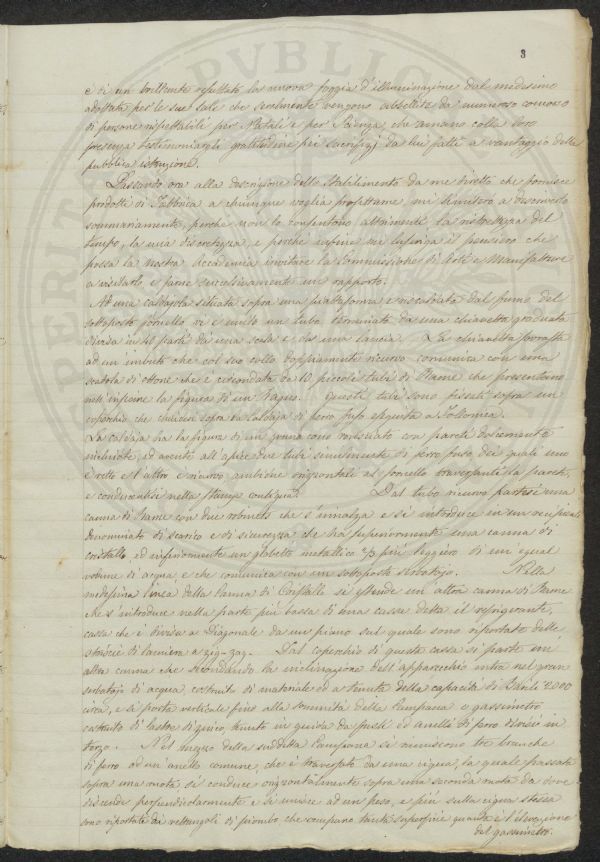 3
e di un brillante risultato la nuova foggia d'illuminazione dal medesimo
adottata per le sue sale che seralmente vengono abbellite da numeroso concorso
di persone rispettabili per Natali e per Scienza, che amano colla loro
presenza testimoniargli gratitudine pei sacrifizj da lui fatti a vantaggio della
pubblica istruzione.
Passando ora alla descrizione dello Stabilimento da me diretto che fornisce
prodotti di Fabbrica a chiunque voglia profittarne, mi limiterò a descriverlo
sommariamente, perchè non lo consentono altrimenti la ristrettezza del
tempo, la mia discretezza, e perchè infine mi lusinga il pensiero che
possa la nostra Accademia invitare la Commissione di Arti e Manifatture
a visitarlo, e farne successivamente un rapporto.
Ad una caldajola situata sopra una piattaforma e riscaldata dal fumo del
sottoposto fornello vi è unito un tubo terminato da una chiavetta graduata
divisa in 40 parti da una scala e da una lancia. La chiavetta sovrasta
ad un imbuto che col suo collo doppiamente ricurvo comunica con una
scatola di ottone che è circondata da 10 piccoli tubi di Rame che presentano
nell'insieme la figura di un Ragno. Questi tubi sono fissati sopra un
coperchio che chiudesi sopra la Caldaja di ferro fuso eseguita a Follonica.
La caldaja ha la figura di un cono rovesciato con pareti dolcemente
inclinate ed avente all'apice due tubi similmente di ferro fuso dei quali uno
è retto e l'altro è ricurvo ambidue orizzontali al fornello traversanti la parete,
e condicentisi nella Stanza contigua. Dal tubo ricurvo partesi una
canna di Rame con due robinets che s'innalza e si introduce in un recipiente
denominato di scarico e di sicurezza che ha superiormente una canna di
cristallo, ed inferiormente un globetto metallico 2/3 più leggiero di un egual
volume di acqua, e che comunica con un sottoposto serbatojo. Nella
medesima linea della Canna di Cristallo si estende un altra canna di Rame
che s'introduce nella parte più bassa di una cassa detta il refrigerante,
cassa che è divisa a Diagonale da un piano sul quale sono riportate delle
striscie di lamiera a zig-zag. Dal coperchio di questa cassa si parte un'
altra canna che secondando la inclinazione dell'apparecchio entra nel gran
serbatojo di acqua, costruito di materiale ed a tenuta della capacità di Barili 2000
circa, e si porta verticale fino alla sommità della Campana o gassimetro
costruito di lastre di zinco, tenuto in guida da fusti ed anelli di ferro divisi in
terzo. Nel mezzo della suddetta Campana si riuniscono tre branche
di ferro ad un'anello comune, che è traversato da una cigna, la quale passata
sopra una ruota, si conduce orizzontalmente sopra una seconda ruota da dove
discende perpendicolarmente e si unisce ad un peso, e più sulla cigna stessa
sono riportate dei rettangoli di piombo che compano tanta superficie quanta è l'elevazione
del gassimetro.